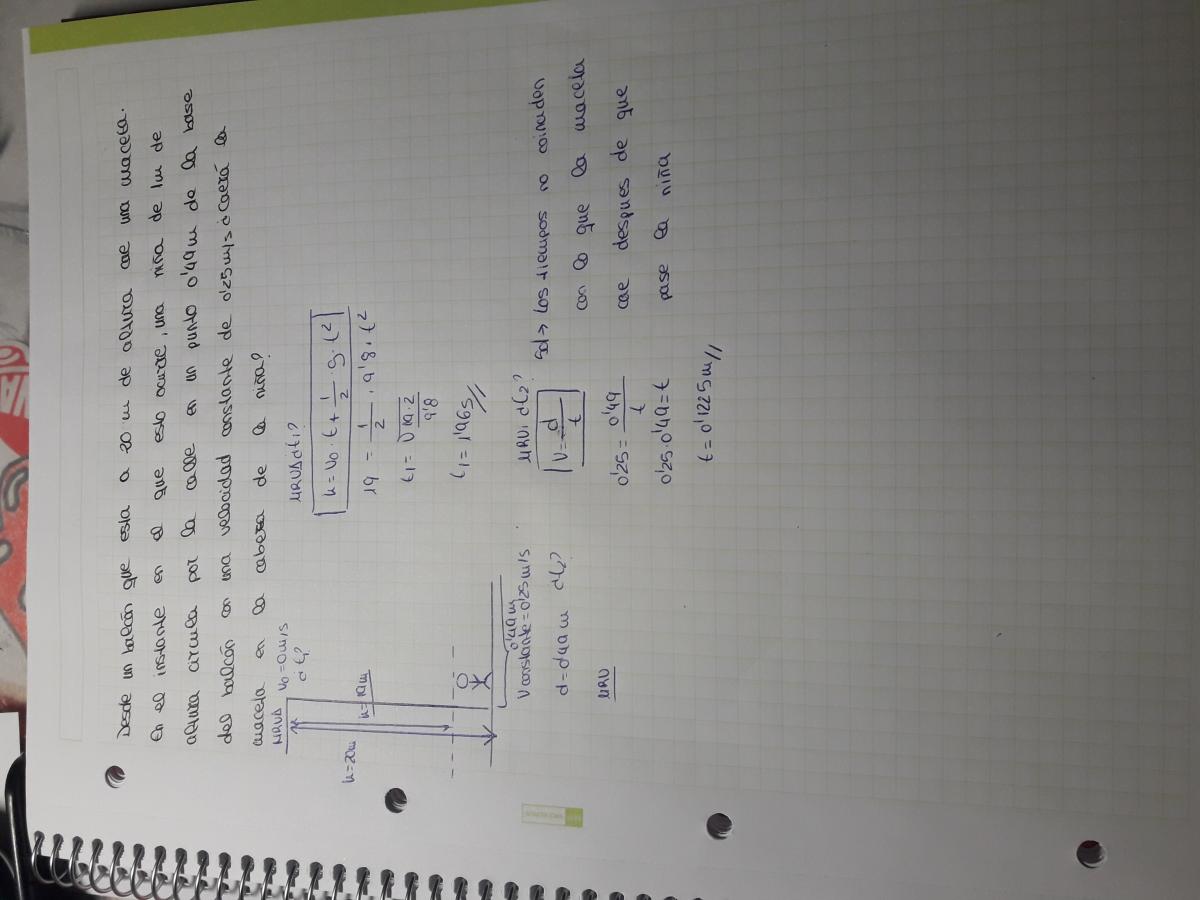 Desde un balcón que esta a 20 m de altura cae una maceta.
En el instante en el que esto ocurre, una niña de 1m de
altura circula por la calle en un punto 0'49m de la base
del balcón con una velocidad constante de 0'25m/s ¿Caerá la
maceta en la cabeza de la niña?
MRUA V0 = 0m/s
¿t1?
h=20m
h=19m
0'49m
V constante = 0'25m/s
d=0'49m ¿t2?
MRU
MRUA ¿t1?
h = V0 · t + 1/2 · g · t²
19 = 1/2 · 9'8 · t²
t1 = √19·2/9'8
t1 = 1'96s//
MRU ¿t2?
V = d/t
0'25 = 0'49/t
0'25 · 0'49 = t
t = 0'1225m//
Sol → Los tiempos no coinciden
con lo que la maceta
cae despues de que
pase la niña